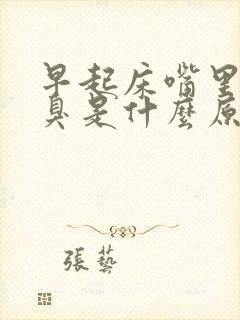 早起床嘴里
臭是什麽原
張藝